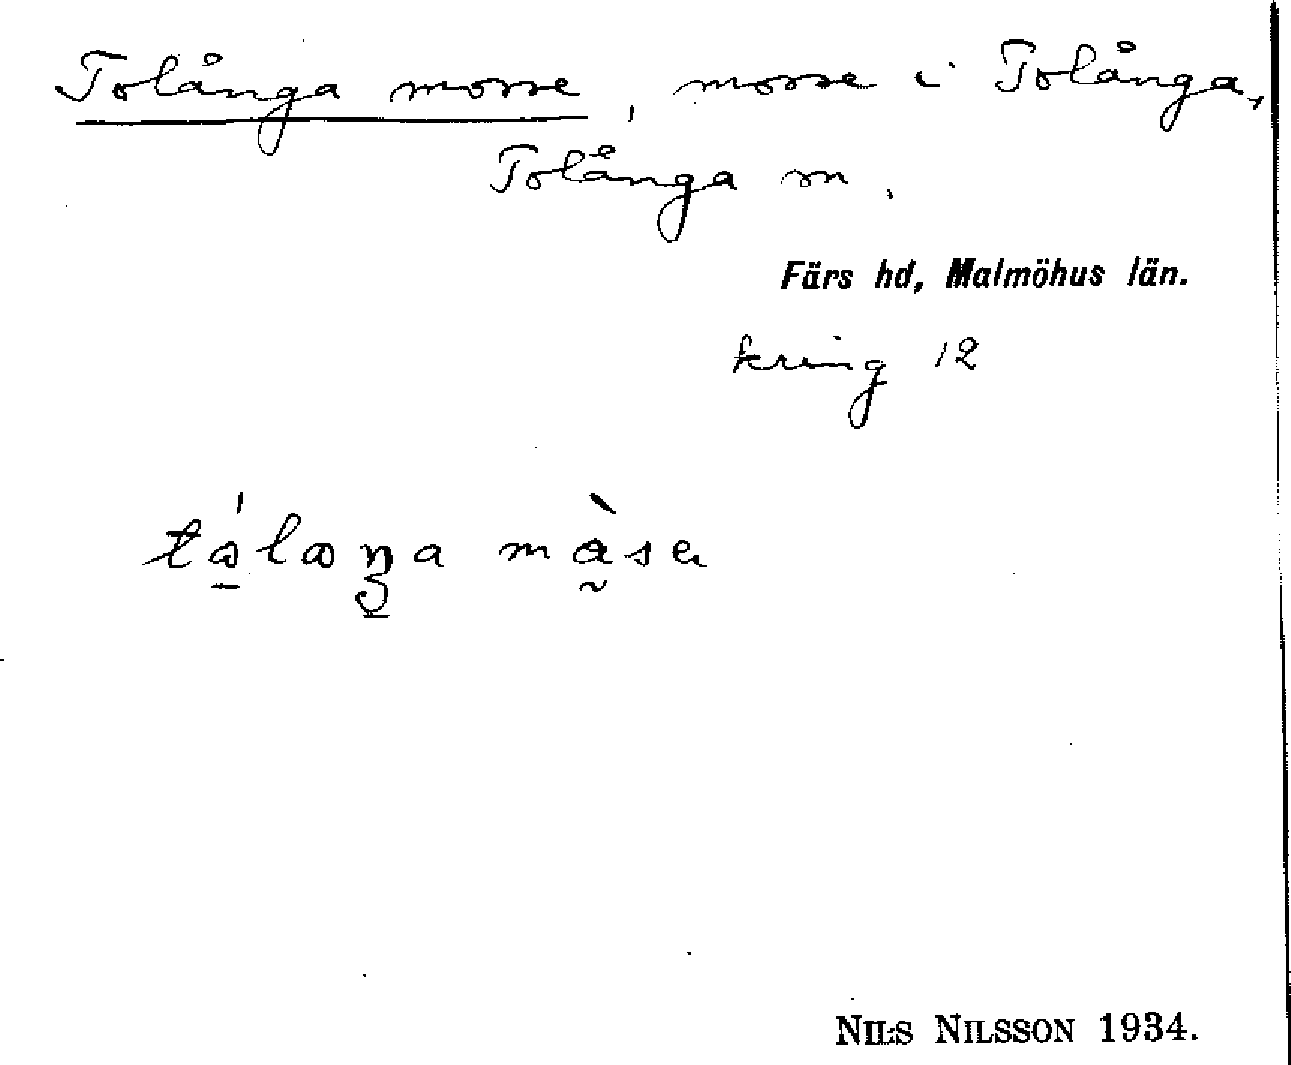 Tolånga mosse, mosse i Tolånga,
Tolånga sn.
Färs hd, Malmöhus län.
kring 12
tálaŋa màsa
NILS NILSSON 1934.